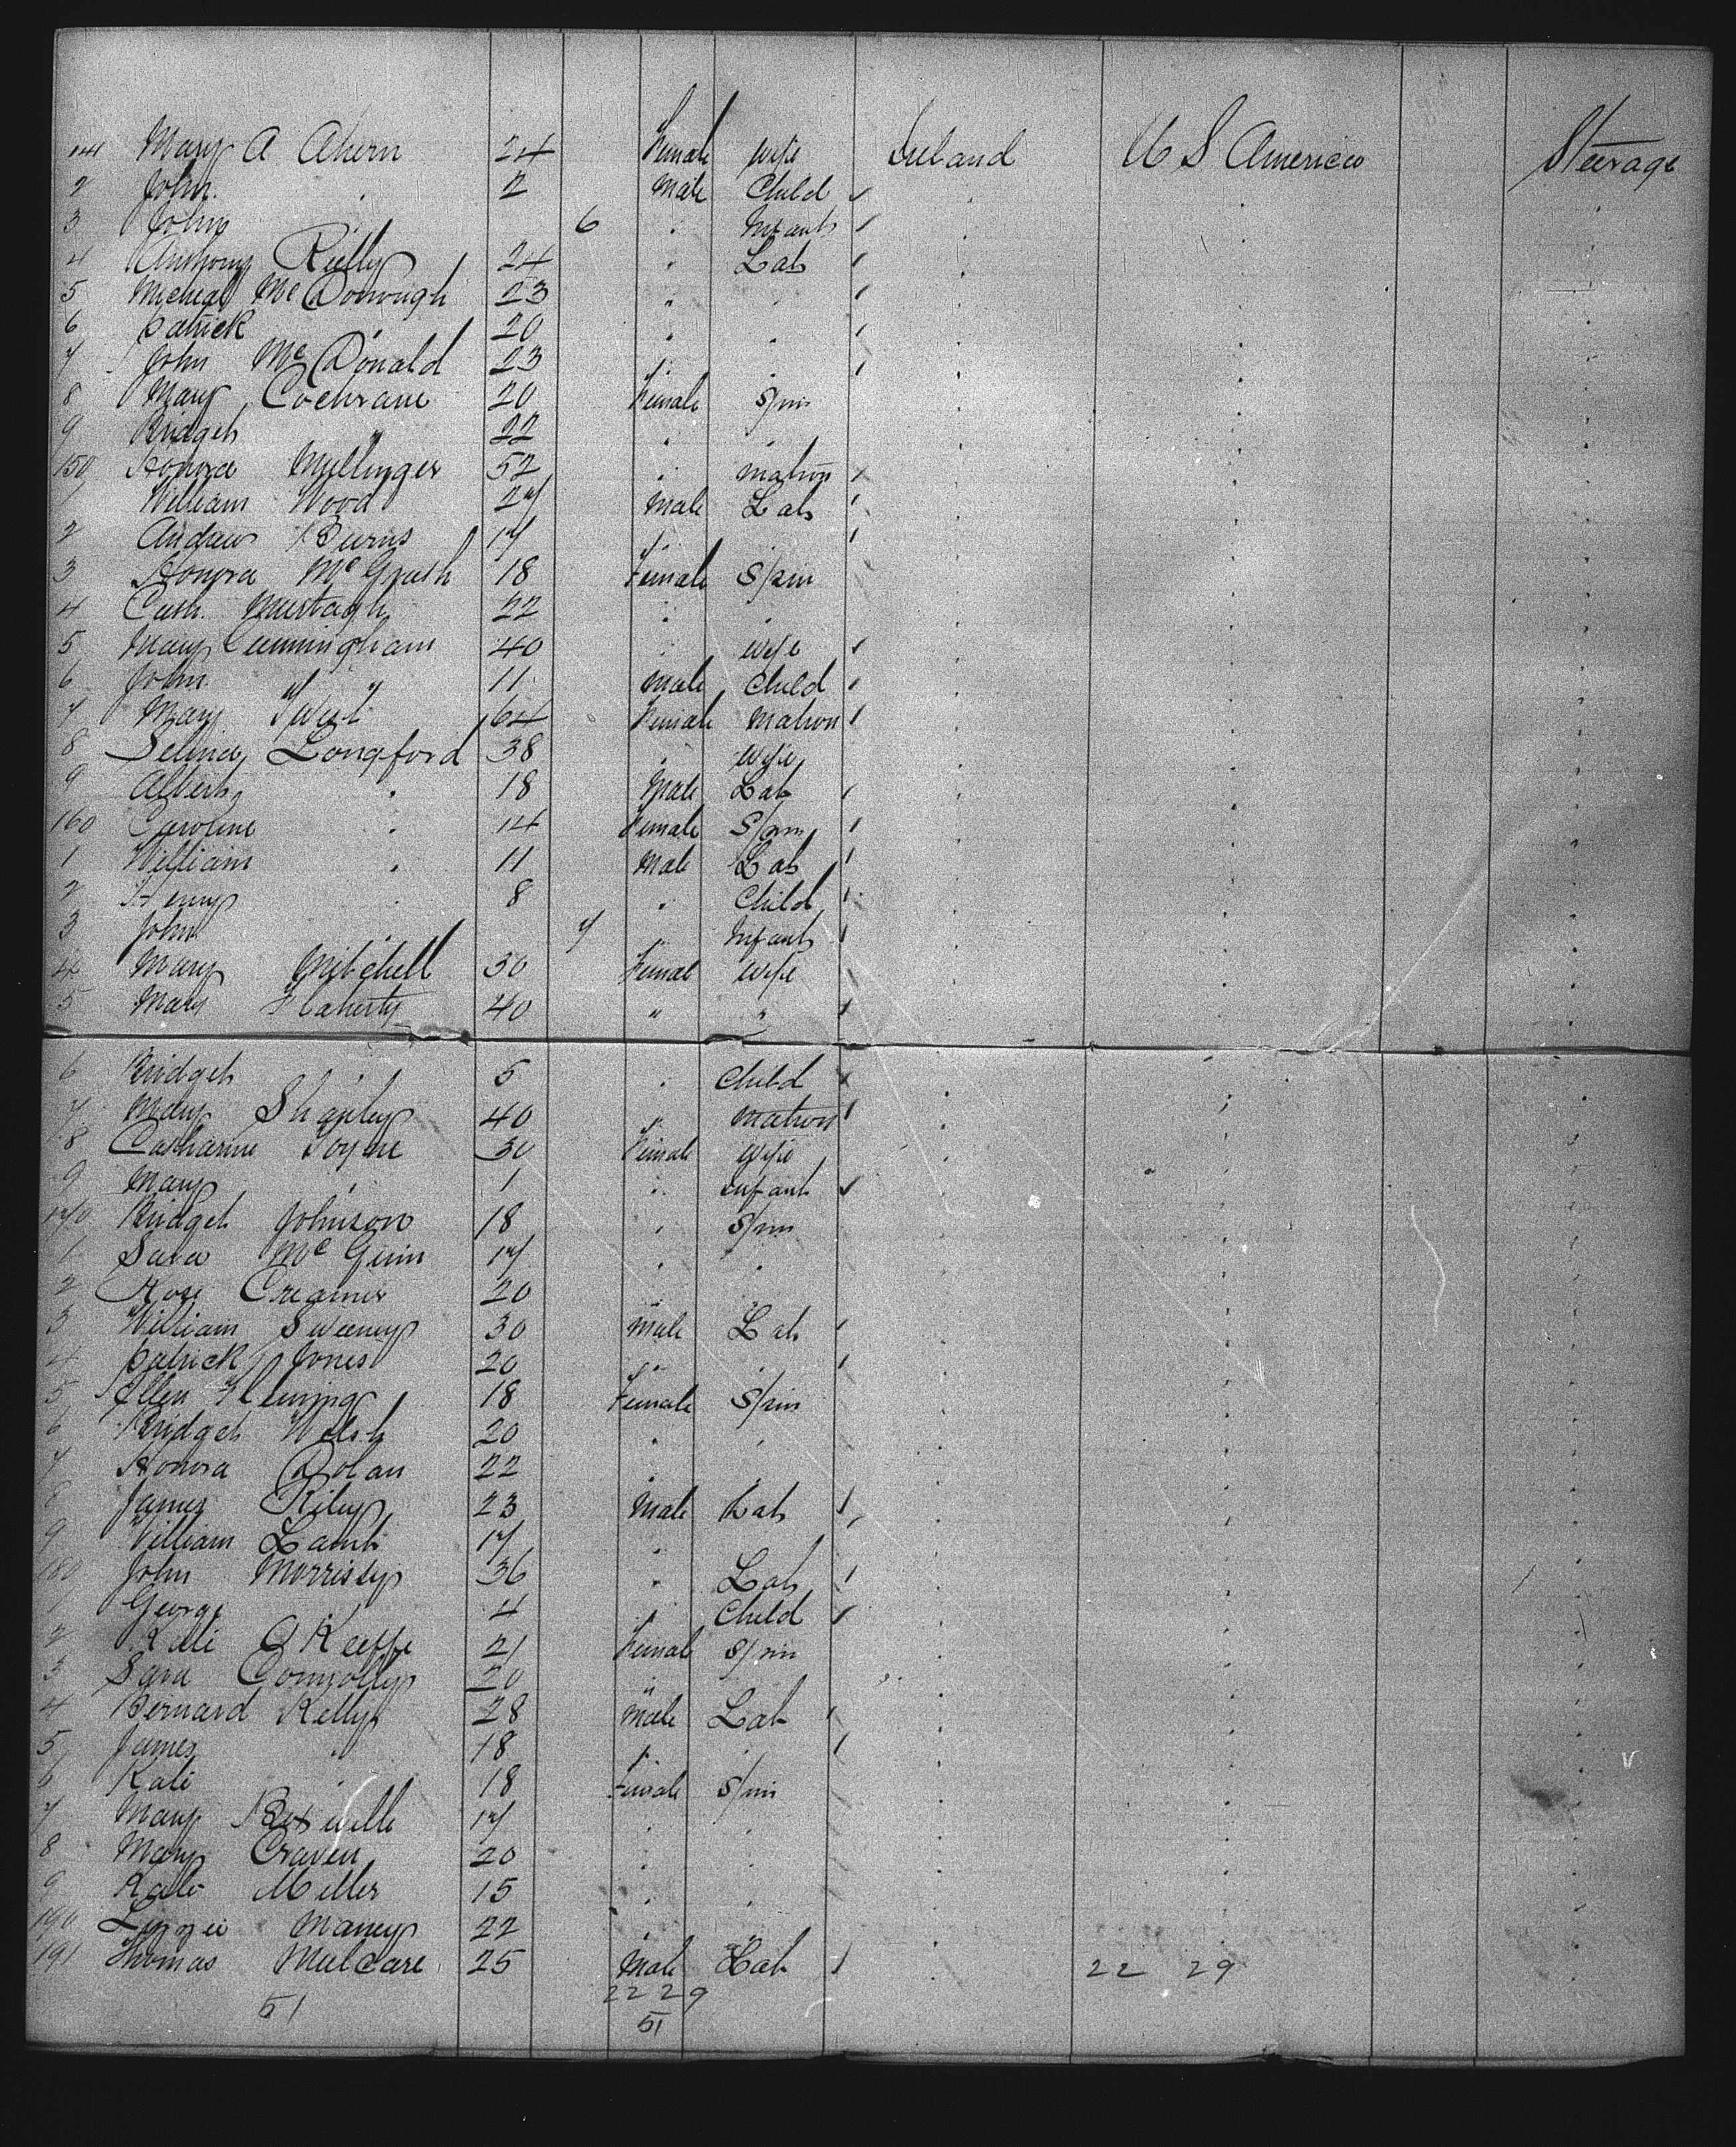 141 Mary A Ahern 24 Female Wife Ireland U S America Steerage
2 John " 2 Male Child " " "
3 John 6 " Infant " " "
4 Anthony Reilly 24 " Lab " " "
5 Micheal McDonough 23 " " " " "
6 Patrick " 20 " " " " "
7 John McDonald 23 " " " " "
8 Mary Cochrane 20 Female Spin " " "
9 Bridget " 22 " " " " "
150 Honora 52 " Matron " " "
1 William Wood 27 Male Lab " " "
2 Andrew Burns 17 " " " " "
3 Honora McGrath 18 Female Spin " " "
4 Cath. Murtagh 22 " " " " "
5 Mary Cunningham 40 " Wife " " "
6 John " " 11 Male Child " " "
7 Mary 64 Female Matron " " "
8 Selina Longford 38 " Wife " " "
9 Albert " 18 Male Lab " " "
160 Caroline " 14 Female Spin " " "
1 William " 11 Male Lab " " "
2 Henry " 8 " Child " " "
3 John " 7 " Infant " " "
4 Mary Mitchell 30 Female Wife " " "
5 Mary Flaherty 40 " " " " "
6 Bridget " 5 " Child " " "
7 Mary 40 " Matron " " "
8 Catharine 30 Female Wife " " "
9 Mary " 1 " Infant " " "
170 Bridget Johnson 18 " Spin " " "
1 Sara McGinn 17 " " " " "
2 Rose Creamer 20 " " " " "
3 William Sweeney 30 Male Lab " " "
4 Patrick Jones 20 " " " " "
5 Ellen Fleming 18 Female Spin " " "
6 Bridget Welsh 20 " " " " "
7 Honora Dolan 22 " " " " "
8 James Riley 23 Male Lab " " "
9 William Lamb 17 " " " "
180 John Morrissy 36 " Lab " " "
1 George " 4 " Child " " "
2 Kate O Keeffe 21 Female Spin " " "
3 Sara Connolly 20 " " " " "
4 Bernard Kelly 28 Male Lab " " "
5 James " 18 " " " " "
6 Kate " 18 Female Spin " " "
7 Mary 17 " " " " "
8 Mary Craven 20 " " " " "
9 Kate Miller 15 " " " " "
190 Lizzie Maney 22 " " " " "
191 Thomas Mulcare 25 Male Lab " 22 29 "
51 22 29
51